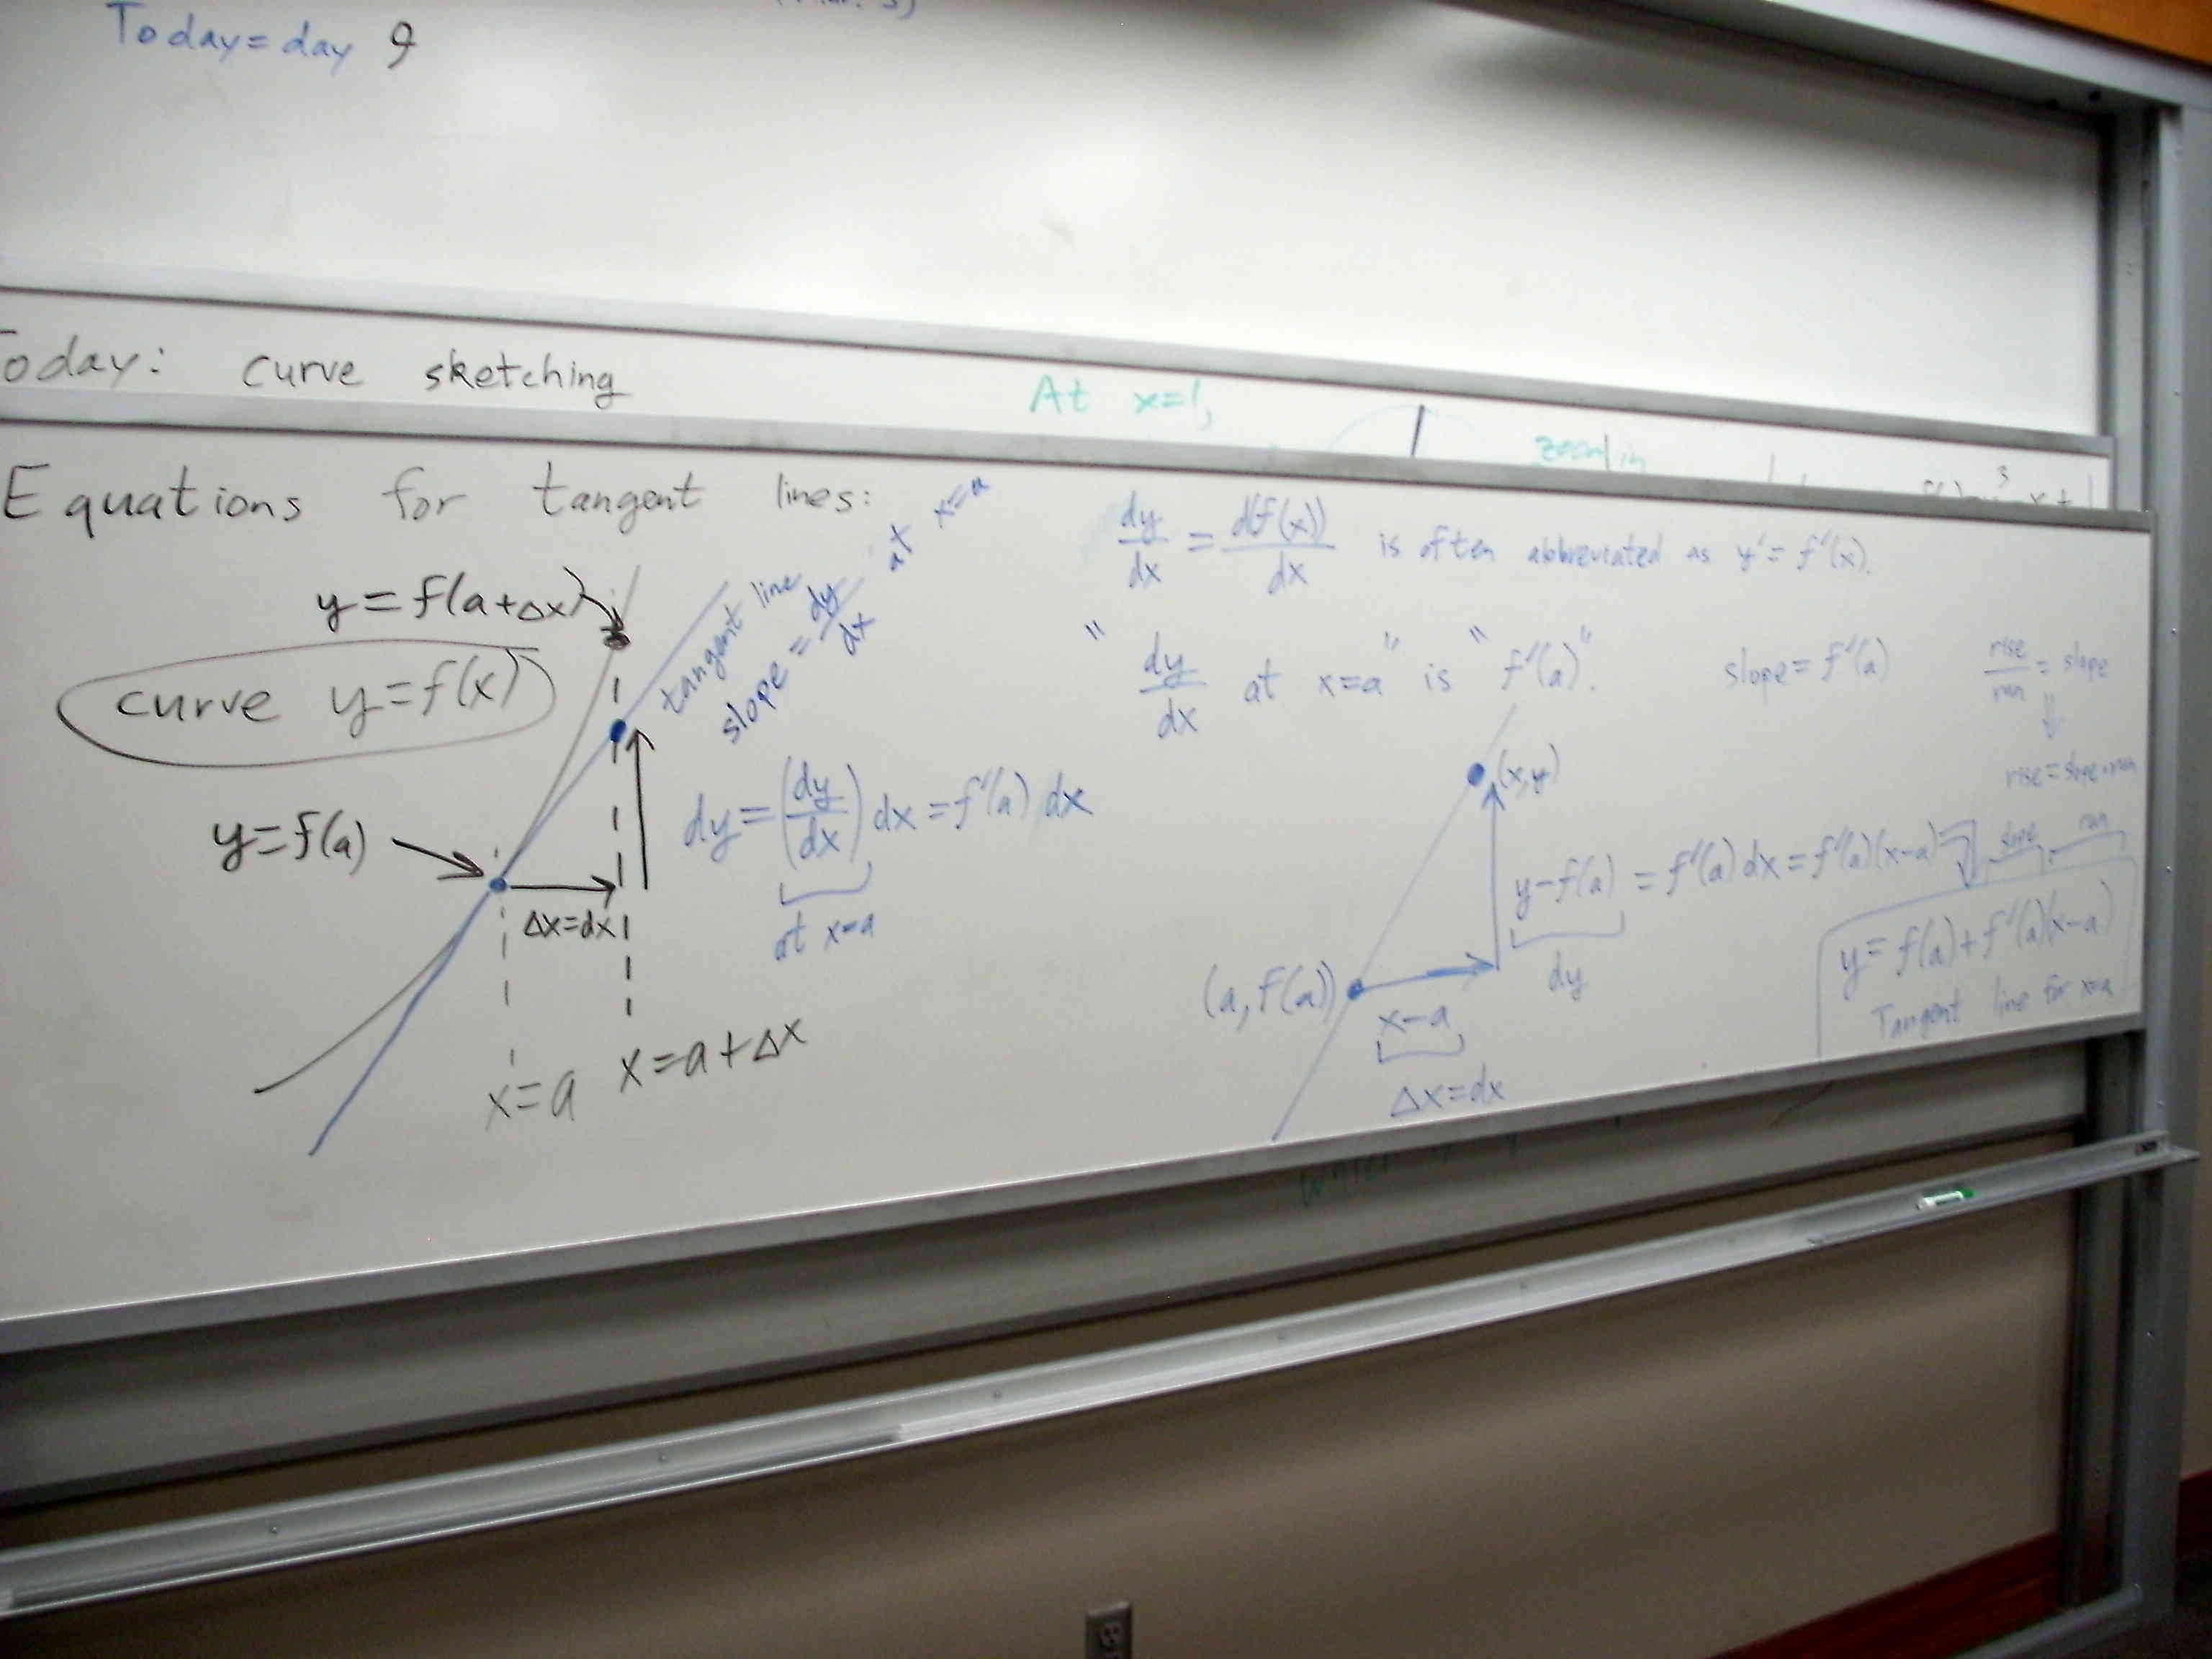 Today = day 9
Today: curve sketching
At x=1,
zoom in
Equations for tangent lines:
y = f(a+Δx)
curve y=f(x)
y=f(a)
Δx=dx
x=a
x=a+Δx
tangent line
slope = dy/dx at x=a
dy = (dy/dx) dx = f'(a) dx
at x=a
dy/dx = d(f(x))/dx is often abbreviated as y' = f'(x).
"dy/dx at x=a" is "f'(a)".
slope = f'(a)
rise/run = slope
⇓
rise = slope·run
(x,y)
y-f(a) = f'(a) dx = f'(a)(x-a)
dy
(a, f(a))
x-a
Δx=dx
slope run
y = f(a) + f'(a)(x-a)
Tangent line for x=a